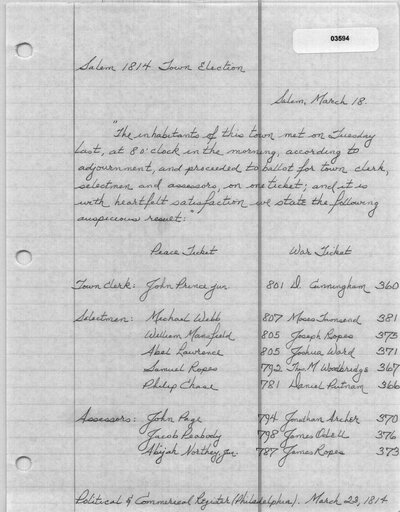 03594
Salem 1814 Town Election
Salem, March 18.
"The inhabitants of this town met on Tuesday
last, at 8 o'clock in the morning, according to
adjournment, and proceeded to ballot for town clerk,
selectmen and assessors, on one ticket; and it is
with heartfelt satisfaction we state the following
auspicious result:"
Peace Ticket War Ticket
Town Clerk: John Prince Jun. 801 D. Cunningham 360
Selectmen: Michael Webb 807 Moses Townsend 381
William Mansfield 805 Joseph Ropes 375
Abel Lawrence 805 Joshua Ward 371
Samuel Ropes 792 Thos. M Woodbridge 367
Philip Chase 781 Daniel Putnam 366
Assessors: John Page 794 Jonathan Archer 370
Jacob Peabody 798 James Odell 376
Abijah Northey, Jun. 787 James Ropes 373
Political & Commercial Register (Philadelphia). March 23, 1814